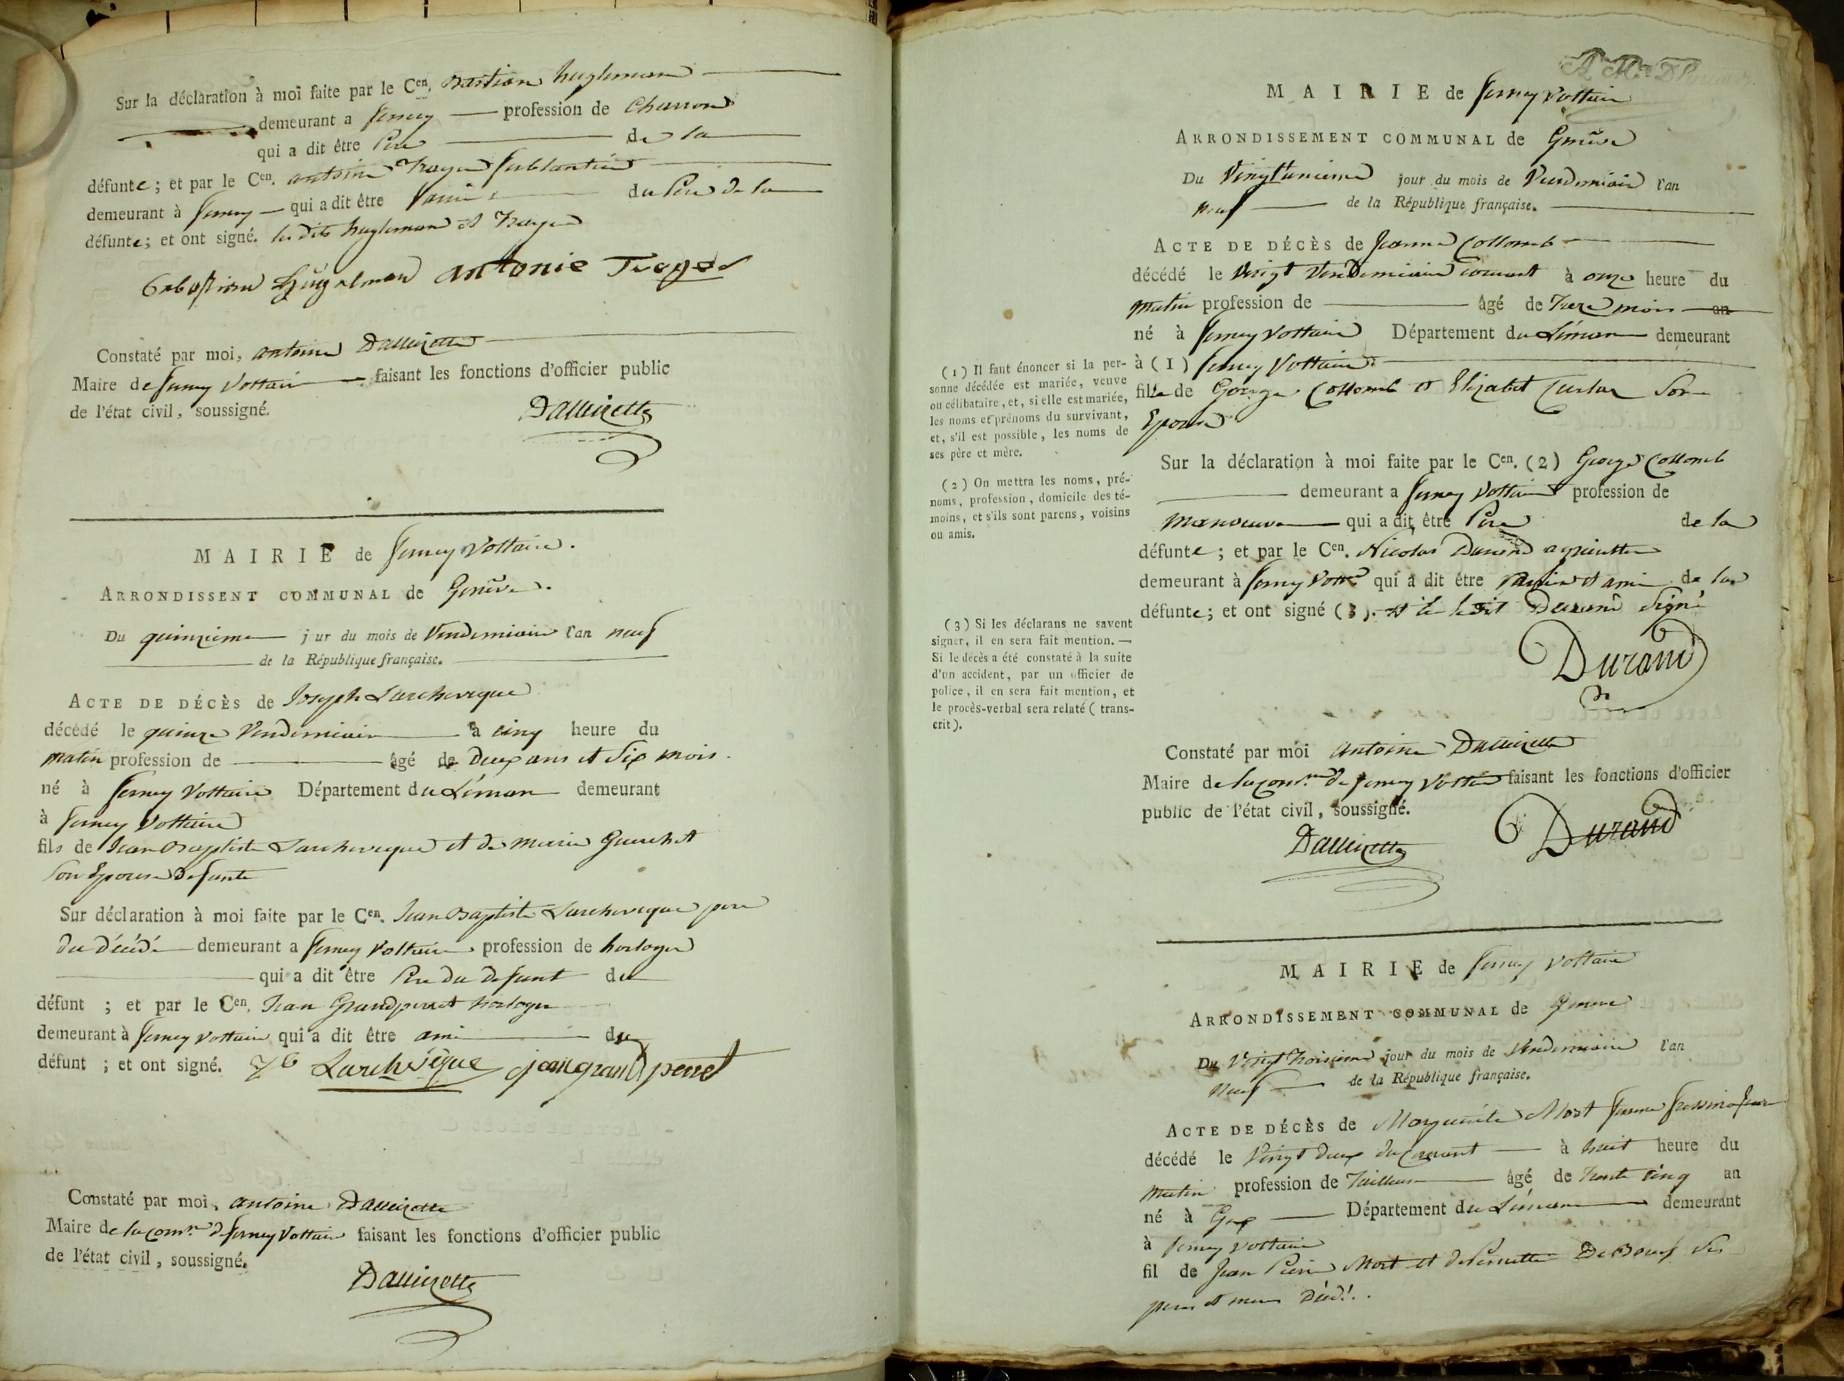 Sur la déclaration à moi faite par le Cen. Bastian hugleman
demeurant a ferney profession de Charron
qui a dit être Pere de la
défunte; et par le Cen. antoine Troyer ferblantier
demeurant à ferney qui a dit être l'ami du Pere de la
défunte; et ont signé. les dits hugleman et Troyer
antonie Troyer
Constaté par moi, antoine Dallizette
Maire de ferney Voltaire faisant les fonctions d'officier public
de l'état civil, soussigné.
Dallizette
MAIRIE de ferney Voltaire.
ARRONDISSENT COMMUNAL de Genêve.
Du quinzieme j ur du mois de Vendemiaire l'an neuf
de la République française.
ACTE DE DÉCÈS de Joseph Larcheveque
décédé le quinze Vendemiaire à cinq heure du
matin profession de âgé de Deux ans et Six mois.
né à ferney Voltaire Département du Léman demeurant
à ferney Voltaire
fils de Jean Baptiste Larcheveque et de marie
Son Epouse Defunte
Sur déclaration à moi faite par le Cen. Jean Baptiste Larcheveque pere
du décédé demeurant a ferney Voltaire profession de horloger
qui a dit être Pere du defunt du
défunt ; et par le Cen. Jean Grandperret horloger
demeurant à ferney Voltaire qui a dit être ami du
défunt ; et ont signé. Larchvêque jean grand perret
Constaté par moi, antoine Dallizette
Maire de la comne de ferney Voltaire faisant les fonctions d'officier public
de l'état civil, soussigné.
Dallizette
MAIRIE de ferney Voltaire
ARRONDISSEMENT COMMUNAL de Genêve
Du Vingtunieme jour du mois de Vendemiaire l'an
neuf de la République française.
ACTE DE DÉCÈS de Jeanne Collomb
décédé le Vingt Vendemiaire courant à onze heure du
matin profession de âgé de Treze mois an
né à ferney Voltaire Département du Léman demeurant
à (1) ferney Voltaire
fille de George Collomb et Elizabet Son
Epouse
Sur la déclaration à moi faite par le Cen. (2) George Collomb
demeurant a ferney Voltaire profession de
manoeuvre qui a dit être Pere de la
défunte; et par le Cen. Nicolas Durand
demeurant à ferney Voltre qui a dit être voisin et ami de la
défunte; et ont signé (3). et le dit Durand Signé
Durand
(1) Il faut énoncer si la per-
sonne décédée est mariée, veuve
ou célibataire, et, si elle est mariée,
les noms et prénoms du survivant,
et, s'il est possible, les noms de
ses père et mère.
(2) On mettra les noms, pré-
noms, profession, domicile des té-
moins, et s'ils sont parens, voisins
ou amis.
(3) Si les déclarans ne savent
signer, il en sera fait mention. —
Si le décès a été constaté à la suite
d'un accident, par un officier de
police, il en sera fait mention, et
le procès-verbal sera relaté (trans-
crit).
Constaté par moi antoine Dallizette
Maire de la comne de ferney Voltaire faisant les fonctions d'officier
public de l'état civil, soussigné.
Dallizette Durand
MAIRIE de ferney Voltaire
ARRONDISSEMENT COMMUNAL de Geneve
Du Vingt troisieme jour du mois de Vendemiaire l'an
Neuf de la République française.
ACTE DE DÉCÈS de Marguerite Mort femme
décédé le Vingt deux du Courant à huit heure du
matin profession de Tailleuse âgé de trente cinq an
né à Gex Département du Léman demeurant
à ferney Voltaire
fil de Jean Pierre Mort et de Pernette De Boeuf Ses
peres et meres Décéd.